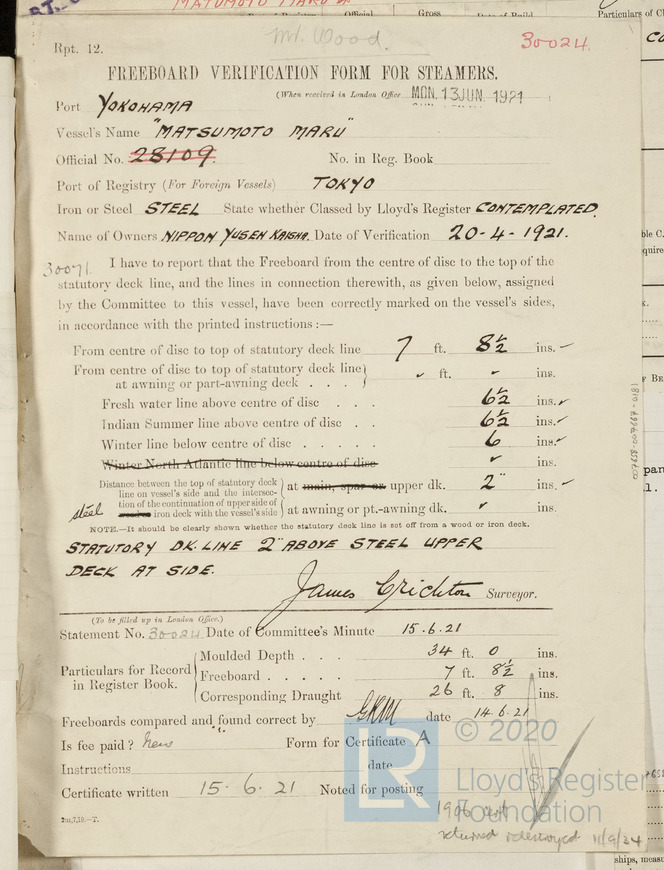 MATUMOTO MARU
Particulars of Cl
Rpt. 12.
Mr. Wood.
30024.
FREEBOARD VERIFICATION FORM FOR STEAMERS.
(When received in London Office MON. 13 JUN. 1921
Port YOKOHAMA
Vessel's Name "MATSUMOTO MARU"
Official No. 28109. No. in Reg. Book
Port of Registry (For Foreign Vessels) TOKYO
Iron or Steel STEEL State whether Classed by Lloyd's Register CONTEMPLATED.
Name of Owners NIPPON YUSEN KAISHA. Date of Verification 20-4-1921.
30071.
I have to report that the Freeboard from the centre of disc to the top of the
statutory deck line, and the lines in connection therewith, as given below, assigned
by the Committee to this vessel, have been correctly marked on the vessel's sides,
in accordance with the printed instructions :—
From centre of disc to top of statutory deck line 7 ft. 8½ ins.
From centre of disc to top of statutory deck line
at awning or part-awning deck . . . ft. ins.
Fresh water line above centre of disc . . 6½ ins.
Indian Summer line above centre of disc . . 6½ ins.
Winter line below centre of disc . . . . . 6 ins.
Winter North Atlantic line below centre of disc ins.
Distance between the top of statutory deck
line on vessel's side and the intersec-
tion of the continuation of upper side of
steel wood or iron deck with the vessel's side
at main, spar or upper dk. 2" ins.
at awning or pt.-awning dk. ins.
NOTE.—It should be clearly shown whether the statutory deck line is set off from a wood or iron deck.
STATUTORY DK. LINE 2" ABOVE STEEL UPPER
DECK AT SIDE.
James Crichton Surveyor.
(To be filled up in London Office.)
Statement No. 30024 Date of Committee's Minute 15.6.21
Particulars for Record
in Register Book.
Moulded Depth . . . 34 ft. 0 ins.
Freeboard . . . . . 7 ft. 8½ ins.
Corresponding Draught 26 ft. 8 ins.
Freeboards compared and found correct by date 14.6.21
Is fee paid? Form for Certificate A
Instructions date
Certificate written 15.6.21 Noted for posting
2m,7,19.—T.
1906 cert
returned & destroyed 11/9/34
LR
© 2020
Lloyd's Register
Foundation